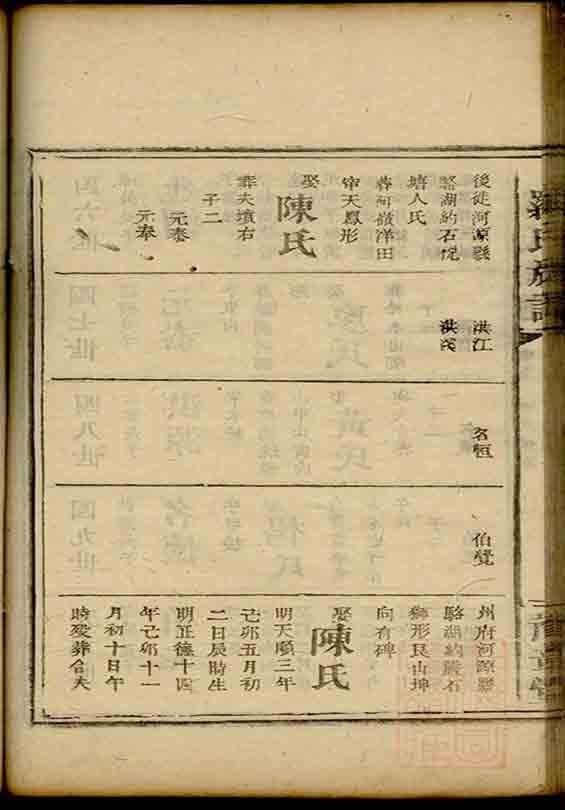 後徙河源縣
駱湖約石優
塘人氏
葬河嶺洋田
帘天鳳形
娶
陳氏
葬夫墳右
子二
元泰
元奉
洪江
洪茂
名恒
伯覺
州府河源縣
駱湖約嚴石
獅形艮山坤
向有碑
娶
陳氏
明天順三年
己卯五月初
二日辰時生
明正德十四
年己卯十一
月初十日午
時歿葬合夫
羅氏族譜